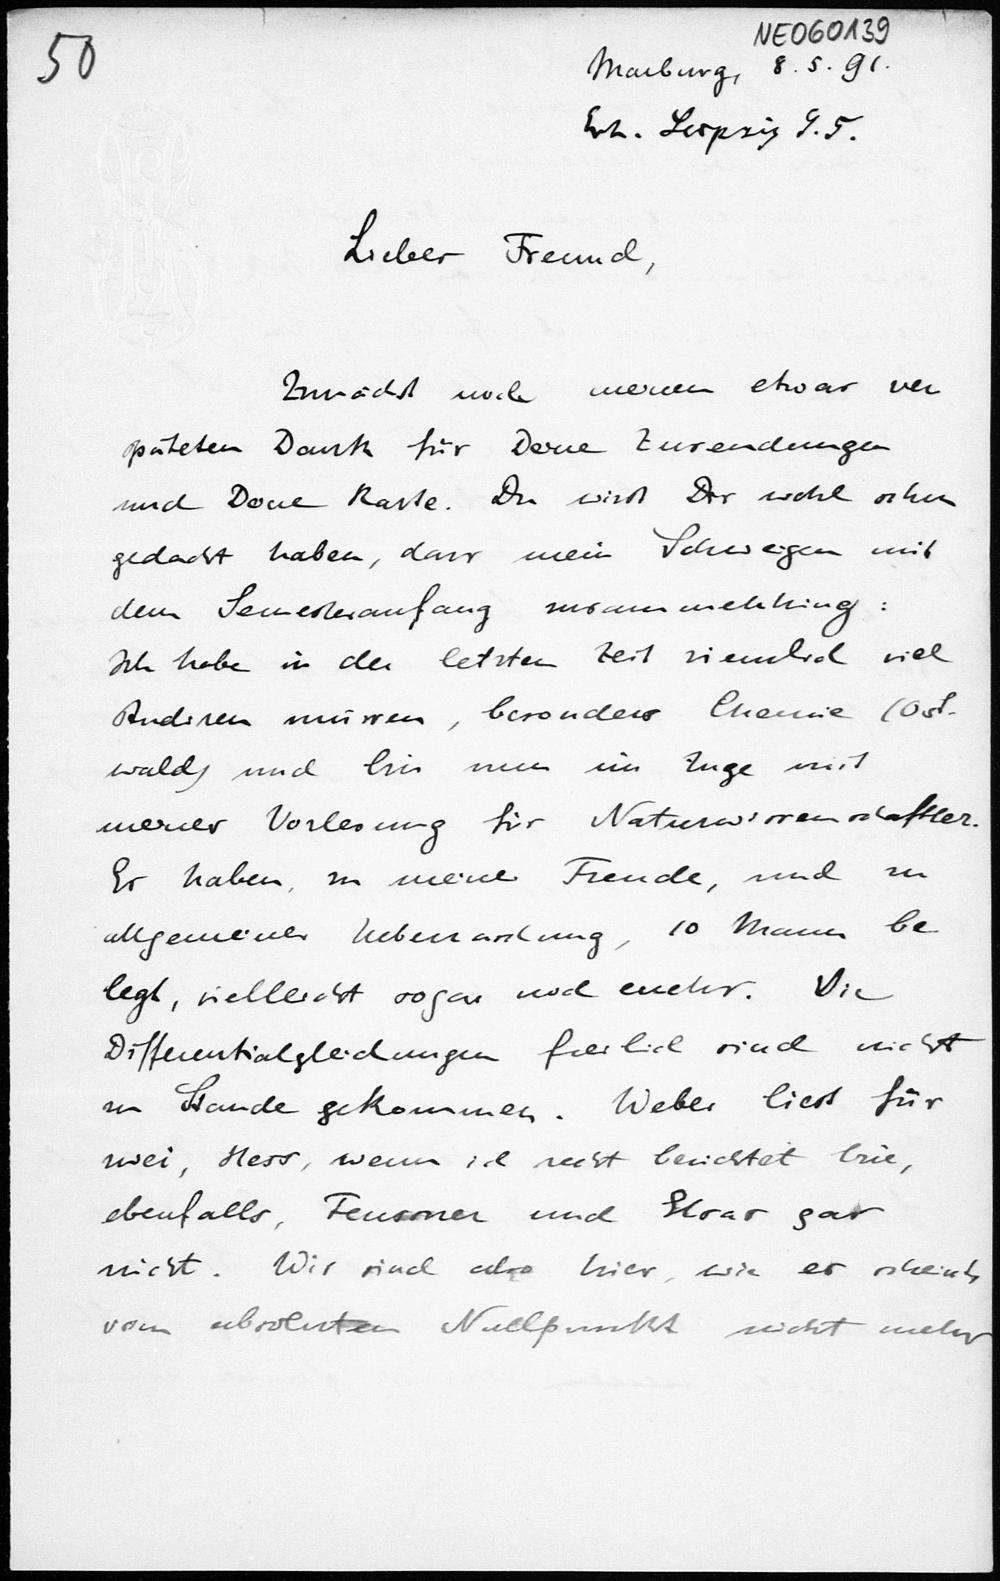 50
NE060139
Marburg, 8.5.91.
Erh. Leipzig 9.5.
Lieber Freund,
Zunächst noch meinen etwas ver
späteten Dank für Deine Zusendungen
und Deine Karte. Du wirst Dir wohl schon
gedacht haben, dass mein Schweigen mit
dem Semesteranfang zusammenhing:
Ich habe in der letzten Zeit ziemlich viel
studiren müssen, besonders Chemie (Ost-
wald) und bin nun im Zuge mit
meiner Vorlesung für Naturwissenschaftler.
Es haben, zu meiner Freude, und zu
allgemeiner Ueberraschung, 10 Mann be
legt, vielleicht sogar noch mehr. Die
Differentialgleichungen freilich sind nicht
zu Stande gekommen. Weber liest für
zwei, Hess, wenn ich recht berichtet bin,
ebenfalls, Feussner und Elsas gar
nicht. Wir sind also hier, wie es scheint,
vom absoluten Nullpunkt nicht mehr